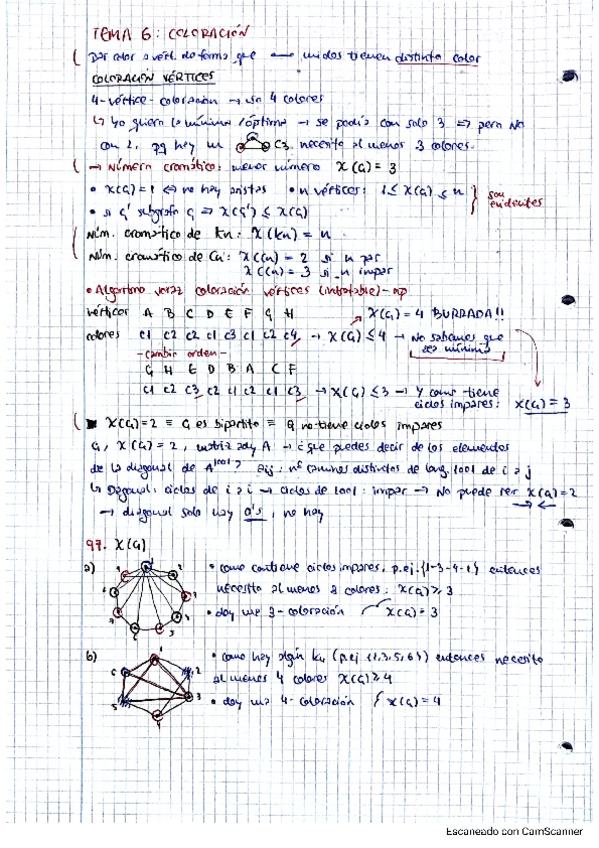 TEMA 6: COLORACIÓN
Dar color a vért. de forma que unidos tienen distinto color
COLORACIÓN VÉRTICES
4-vértice-coloración → usa 4 colores
↳ Yo quiero la mínima/óptima → se podía con solo 3 => pero no
con 2, pq hay un C3, necesita al menos 3 colores.
→ Número cromático: menor número χ(G) = 3
• χ(G) = 1 ⇔ no hay aristas • n vértices: 1 ≤ χ(G) ≤ n } son evidentes
• si G' subgrafo G => χ(G') ≤ χ(G)
Núm. cromático de Kn: χ(Kn) = n
Núm. cromático de Cn: χ(Cn) = 2 si n par
χ(Cn) = 3 si n impar
• Algoritmo voraz coloración vértices (intratable) - np
vértices A B C D E F G H χ(G) = 4 BURRADA!!
colores c1 c2 c2 c1 c3 c1 c2 c4 → χ(G) ≤ 4 → No sabemos que
-cambio orden- sea mínimo
G H E D B A C F
c1 c2 c3 c2 c2 c1 c1 c3 → χ(G) ≤ 3 → Y como tiene
ciclos impares: χ(G) = 3
χ(G) = 2 ≡ G es bipartito ≡ G no tiene ciclos impares
G, χ(G) = 2, matriz ady A → ¿que puedes decir de los elementos
de la diagonal de A^1001? aij: nº caminos distintos de long. 1001 de i a j
↳ Diagonal: ciclos de i a i → ciclos de 1001: impar → No puede ser χ(G) = 2
→ diagonal solo hay 0's, no hay
97. χ(G)
a) • como contiene ciclos impares, p.ej. {1-3-4-1} entonces
necesito al menos 3 colores: χ(G) ≥ 3
• doy una 3-coloración χ(G) = 3
b) • como hay algún K4 (p.ej {1,3,5,6}) entonces necesito
al menos 4 colores χ(G) ≥ 4
• doy una 4-coloración χ(G) = 4
Escaneado con CamScanner